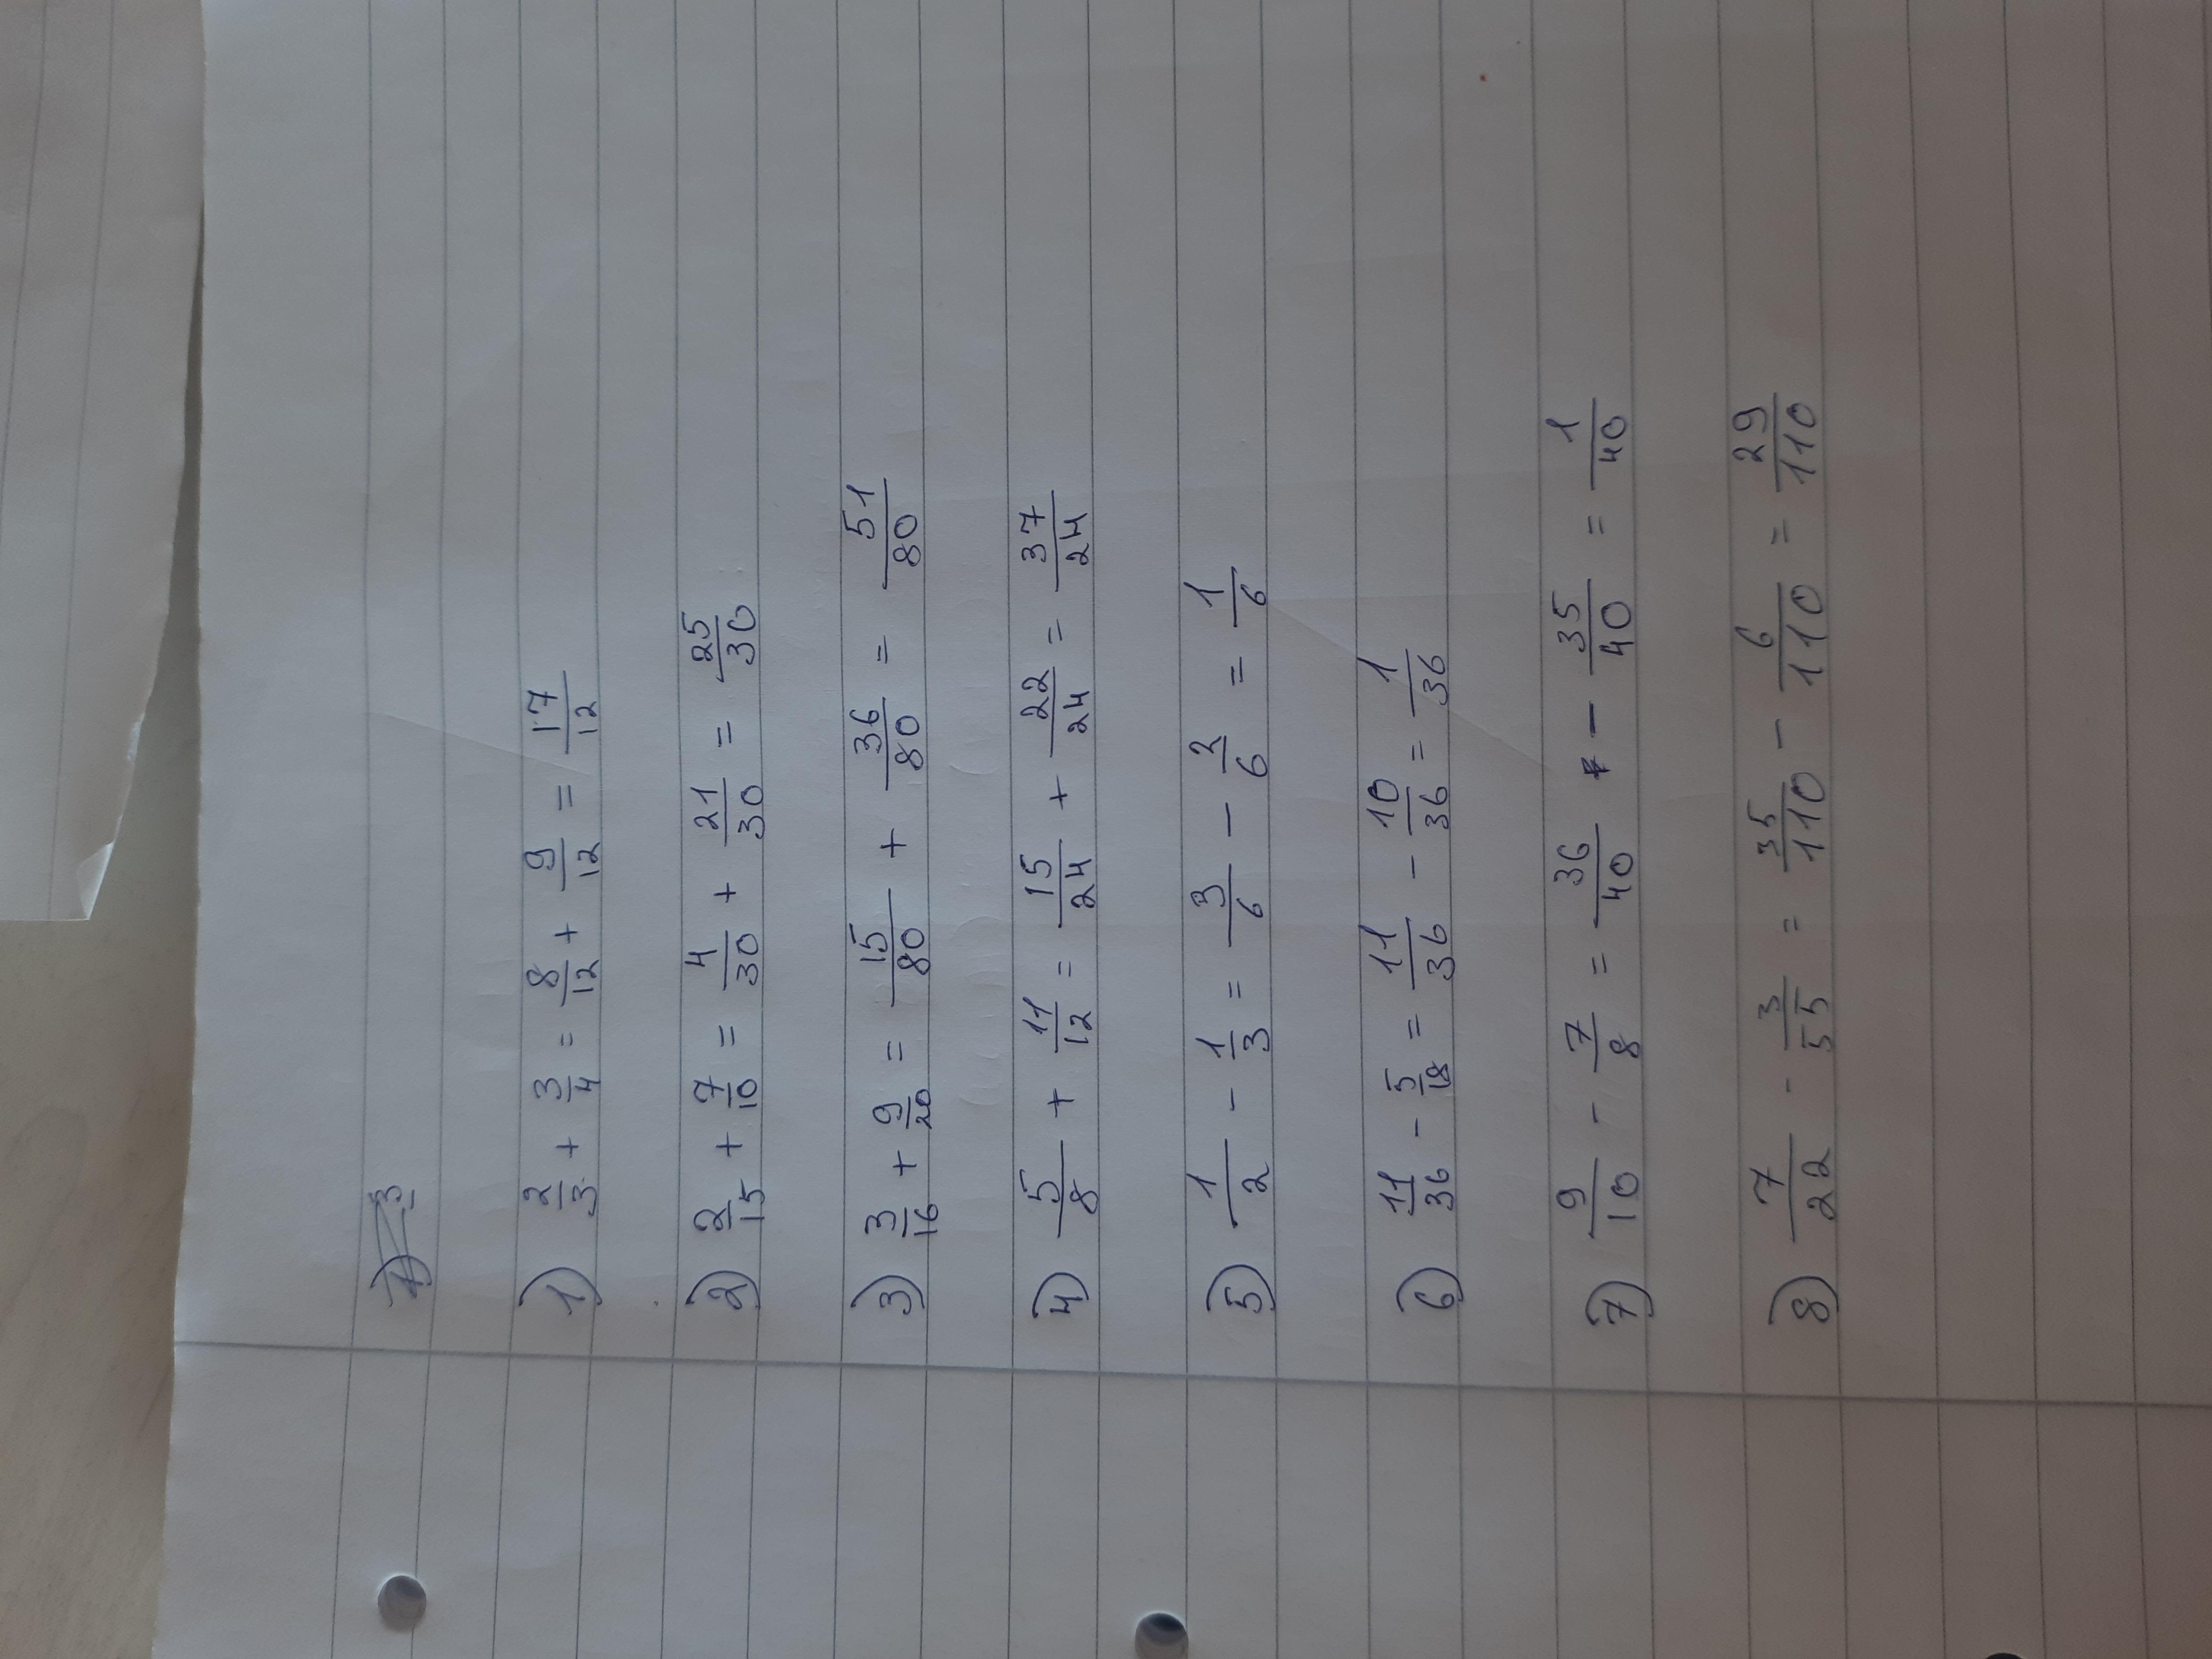 1) 2/3 + 3/4 = 8/12 + 9/12 = 17/12
2) 2/15 + 7/10 = 4/30 + 21/30 = 25/30
3) 3/16 + 9/20 = 15/80 + 36/80 = 51/80
4) 5/8 + 11/12 = 15/24 + 22/24 = 37/24
5) 1/2 - 1/3 = 3/6 - 2/6 = 1/6
6) 11/36 - 5/18 = 11/36 - 10/36 = 1/36
7) 9/10 - 7/8 = 36/40 - 35/40 = 1/40
8) 7/22 - 3/55 = 35/110 - 6/110 = 29/110